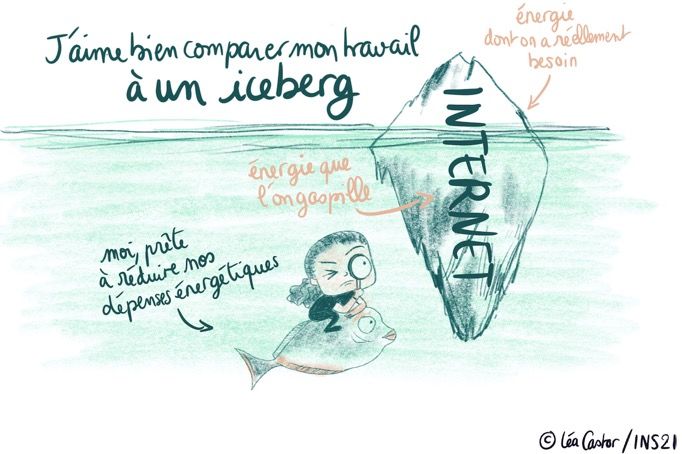 J'aime bien comparer mon travail
à un iceberg
énergie
dont on a réellement
besoin
INTERNET
énergie que
l'on gaspille
moi, prête
à réduire nos
dépenses énergétiques
© Léa Castor / INS2I